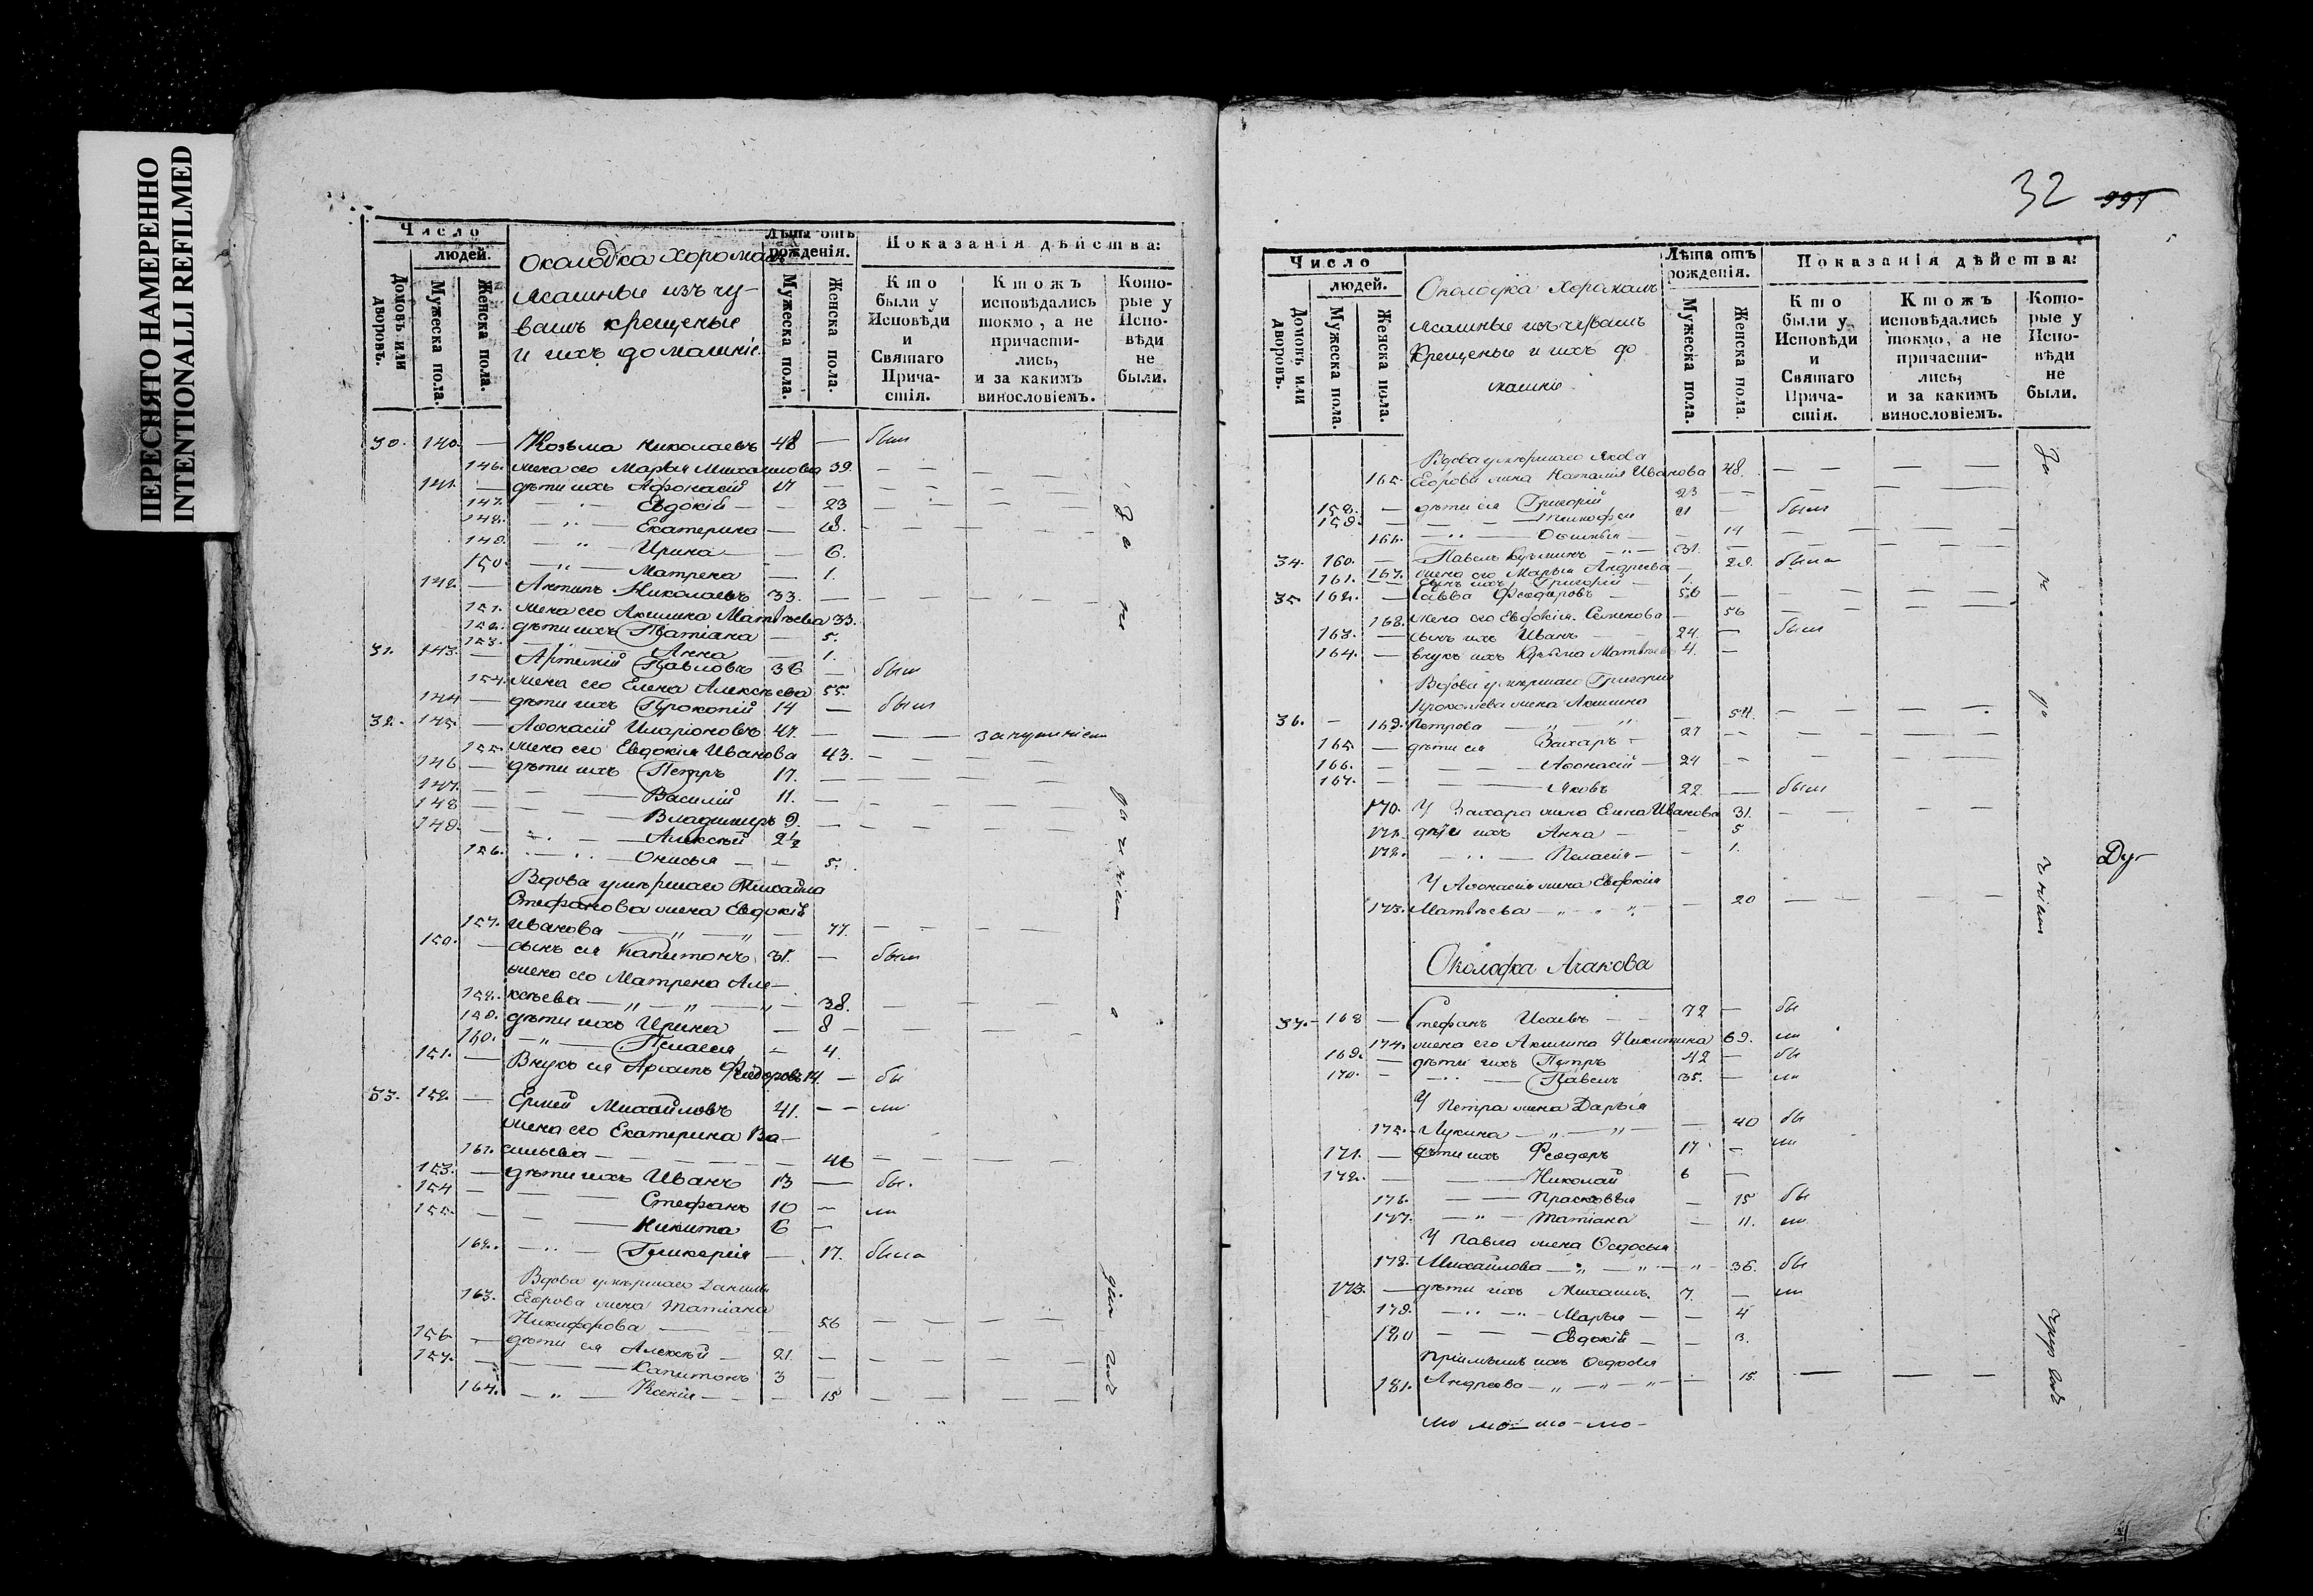 ПЕРЕСНЯТО НАМЕРЕННО
INTENTIONALLI REFILMED
Число
людей.
Домовъ или дворовъ.
Мужеска пола.
Женска пола.
Околодка
Ясашные изъ чу-
вашъ крещеные
и ихъ домашніе.
Лѣта отъ рожденія.
Мужеска пола.
Женска пола.
Показанія дѣйства:
Кто были у Исповѣди и Святаго Причастія.
Ктожъ исповѣдались токмо, а не причастились, и за какимъ винословіемъ.
Которые у Исповѣди не были.
30. 140. — Козьма Николаевъ 48 — былъ
146. жена его Марья Михайлова 39. — —
141. — дѣти ихъ Афонасій 17 —
147. Евдокія — 23
148. Екатерина — 18.
149. Ирина — 6.
150. Матрена — 1.
142. — Антипъ Николаевъ 33. —
151. жена его Акилина Матвѣева 33.
152. дѣти ихъ Татіана — 5.
153. Анна — 1.
31. 143. — Артемій Павловъ 36 — былъ
154. жена его Елена Алексѣева 55.
144 — дѣти ихъ Прокопій 14 — былъ
32. 145. — Афонасій Иларіоновъ 47. —
155. жена его Евдокія Иванова 43. —
146 — дѣти ихъ Петръ 17. —
147. — Василій 11. —
148 — Владимиръ 9.
149. — Алексѣй 2½
156. Онисья — 5.
Вдова умершаго Михайла
Стефанова жена Евдокія
157. Иванова — 77.
150. — сынъ ея Капитонъ 31. — былъ
жена его Матрена Але-
158. ксѣева — 38.
159. дѣти ихъ Ирина — 8 —
160. Пелагея — 4.
151. — Внукъ ея Архипъ Феодоровъ 14. — бы
33. 152. — Ермей Михайловъ 41. — — ли
жена его Екатерина Ва-
161. сильева — 46
153. — дѣти ихъ Иванъ 13 — бы.
154 — Стефанъ 10 — ли
155. — Никита 6 —
162. Гликерія — 17. была
Вдова умершаго Данилы
163. Егорова жена Татіана
Никифорова — 56
156 — дѣти ея Алексѣй 21. —
157. — Капитонъ 3 —
164. Ксенія — 15
32 995
Число
людей.
Домовъ или дворовъ.
Мужеска пола.
Женска пола.
Околодка
Ясашные изъ чувашъ
Крещеные и ихъ до
машніе.
Лѣта отъ рожденія.
Мужеска пола.
Женска пола.
Показанія дѣйства:
Кто были у Исповѣди и Святаго Причастія.
Ктожъ исповѣдались токмо, а не причастились, и за какимъ винословіемъ.
Которые у Исповѣди не были.
За
Вдова умершаго Якова
165. Егорова жена Наталія Иванова 48.
158. — дѣти ея Григорій 23 —
159. — 21 — былъ
166. — 19
34. 160. — Павелъ Кузьминъ 31. —
161. 167. жена его Марья Андреева — 29. была
сынъ ихъ Григорій 1.
35. 162. — Савва Феодоровъ 56 —
168. жена его Евдокія Семенова — 56
163. — сынъ ихъ Иванъ 24. — былъ
164. — внукъ ихъ Кузьма Матвѣевъ 4. —
Вдова умершаго Григорія
жена Акилина
36. — 169. Петрова — 54.
165. — дѣти ея Захаръ 27 —
166. — Афонасій — 24 —
167. — Яковъ 22 — былъ
170. У Захара жена Елена Иванова 31.
171. дѣти ихъ Анна — 5
172. Пелагія — 1.
У Афонасія жена Евдокія
173. Матвѣева — 20
Околодка Агакова
37. 168 — Стефанъ Исаевъ 72 — бы
174. жена его Акилина Никитина 69. ли
169. — дѣти ихъ Петръ 42 — бы
170. — Павелъ 35. — ли
У Петра жена Дарья
175. Лукина — 40 бы
171. — дѣти ихъ Феодоръ 17 — ли
172. — Николай 6 —
176. Прасковья — 15 бы
177. Татіана — 11. ли
У Павла жена Федосья
178. Михайлова — 36. бы
173. — дѣти ихъ Михаилъ 7. — ли
179. Марья — 4
180 Евдокія — 3.
ихъ Федосья
181. Андреева — 15.
Ду-